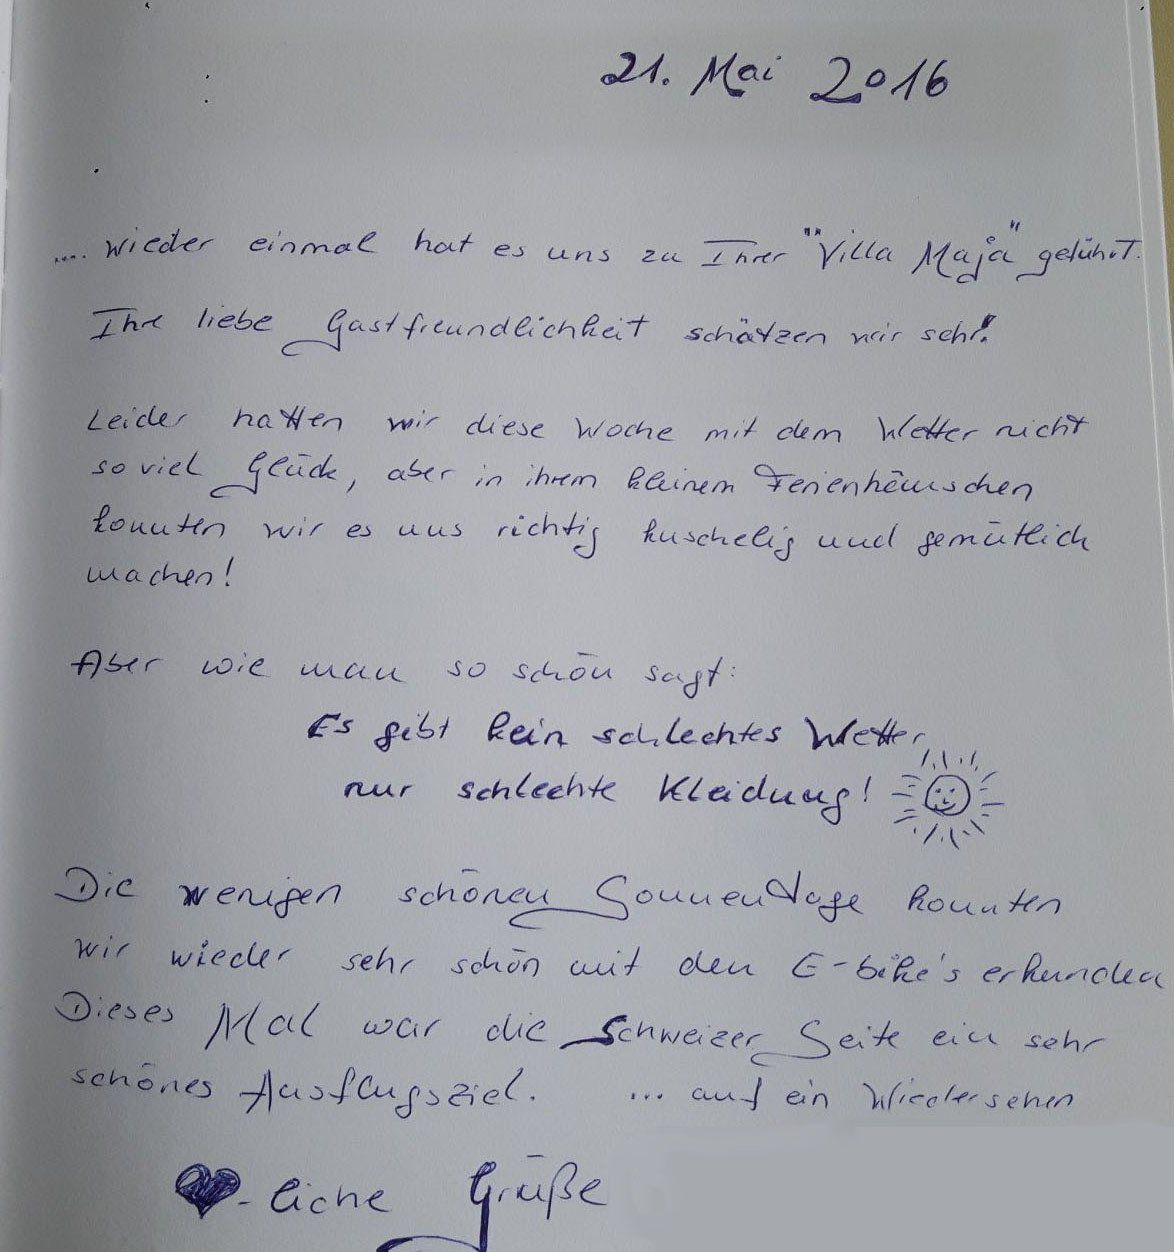 21. Mai 2016
.... wieder einmal hat es uns zu Ihrer "Villa Maja" geführt.
Ihre liebe Gastfreundlichkeit schätzen wir sehr!
Leider hatten wir diese Woche mit dem Wetter nicht
so viel Glück, aber in ihrem kleinem Ferienhäuschen
konnten wir es uns richtig kuschelig und gemütlich
machen!
Aber wie man so schön sagt:
Es gibt kein schlechtes Wetter,
nur schlechte Kleidung!
Die wenigen schönen Sonnentage konnten
wir wieder sehr schön mit den E-bike's erkunden
Dieses Mal war die Schweizer Seite ein sehr
schönes Ausflugsziel. ... auf ein Wiedersehen
-liche Grüße